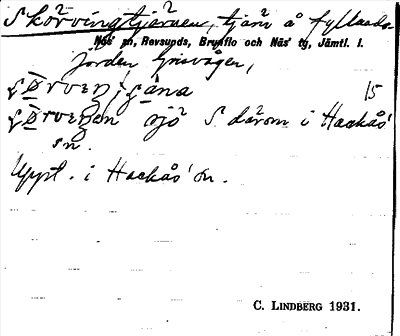 Skörvingtjärnen, tjärn å fyllnads-
Näs' sn, Revsunds, Brunflo och Näs' tg, Jämtl. l.
jorden Grisvågen,
15
sjö S. därom i Hackås'
sn.
Uppt. i Hackås' sn.
C. LINDBERG 1931.